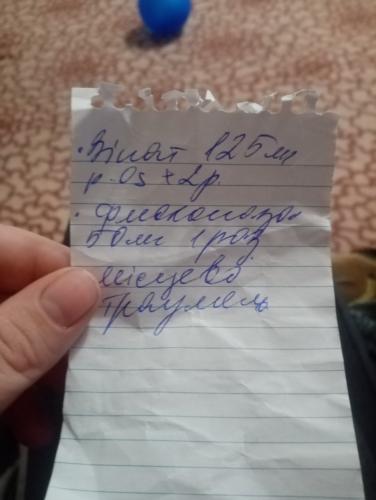 · Зінат 125 мг
p-os × 2 р.
· Флюконазол
50 мг 1 раз
місцево
Траумель